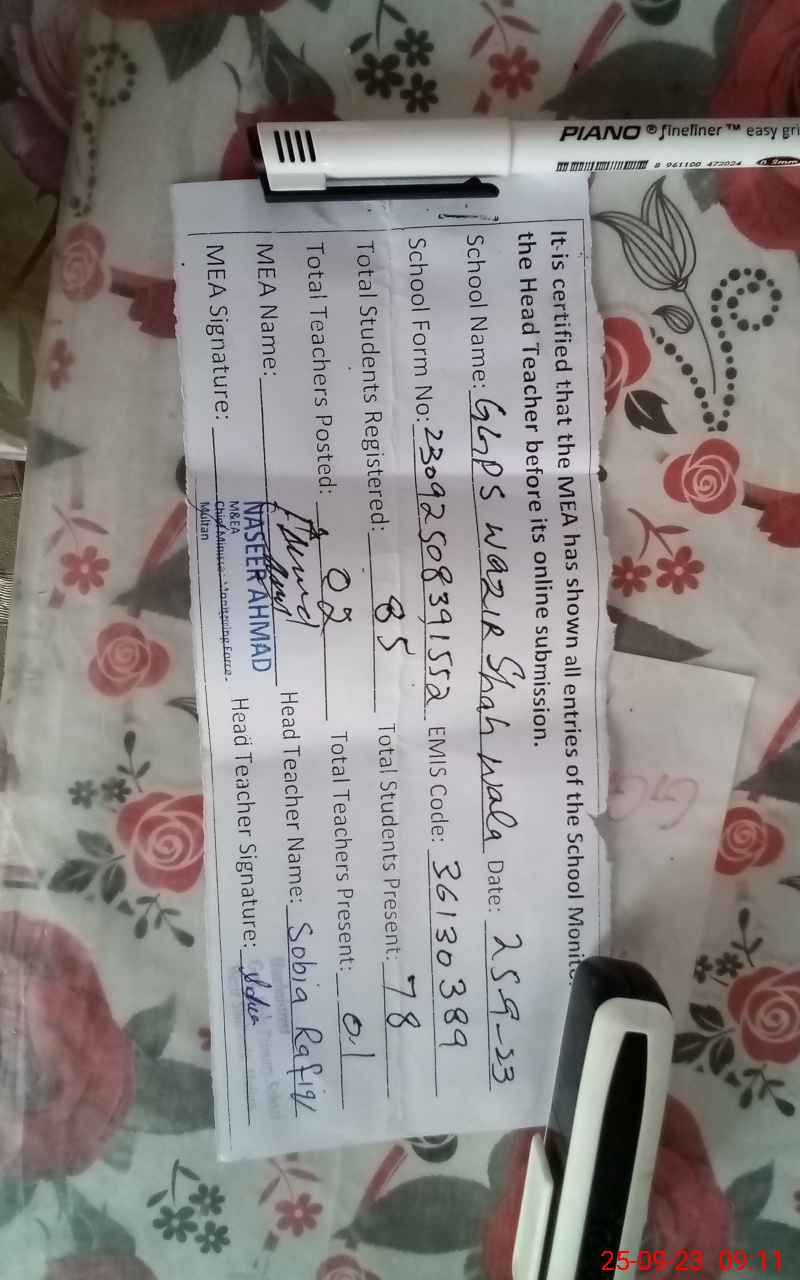 PIANO ® fineliner ™ easy gri
8 961100 472024 0.2mm
It is certified that the MEA has shown all entries of the School Monito
the Head Teacher before its online submission.
School Name: GGPS Wazir Shah wala Date: 25-9-23
School Form No: 23092508391552 EMIS Code: 36130389
Total Students Registered: 85 Total Students Present: 78
Total Teachers Posted: 02 Total Teachers Present: 01
MEA Name: Head Teacher Name: Sobia Rafiq
NASEER AHMAD
MEA Signature: Head Teacher Signature:
M&EA
Chief Minister Monitoring Force
Multan
25-09-23 09:11